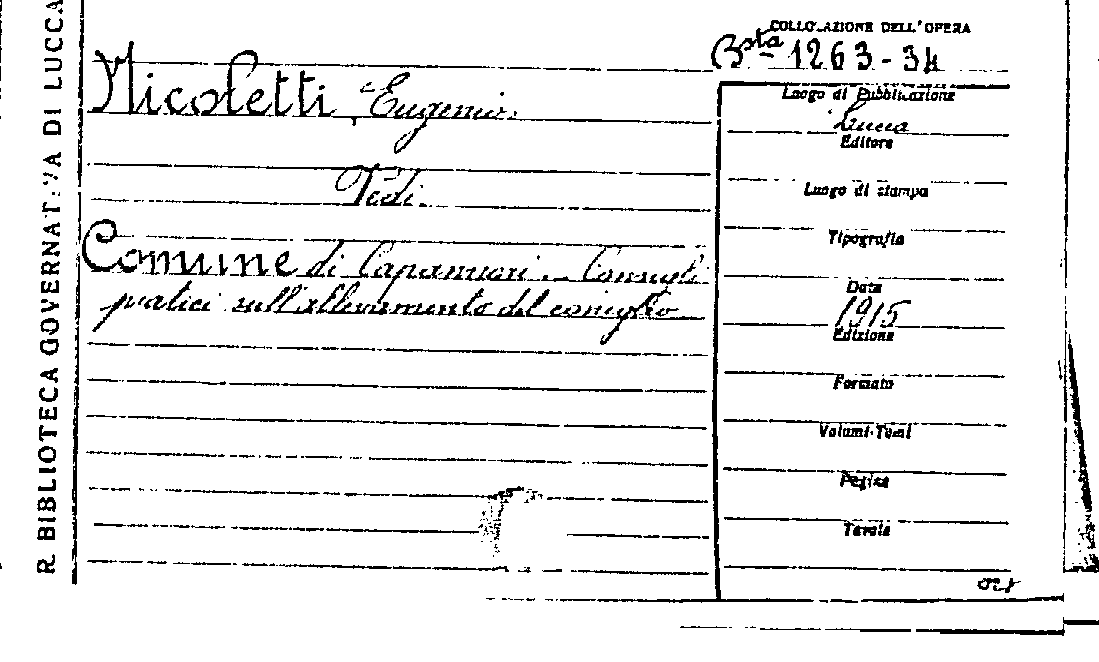 R. BIBLIOTECA GOVERNATIVA DI LUCCA
COLLOCAZIONE DELL'OPERA
Bsta 1263-34
Nicoletti, Eugenio.
Vedi.
Comune di Capannori. - Consigli
pratici sull'allevamento del coniglio
Luogo di Pubblicazione
Lucca
Editore
Luogo di stampa
Tipografia
Data
1915
Edizione
Formato
Volumi-Tomi
Pagine
Tavole